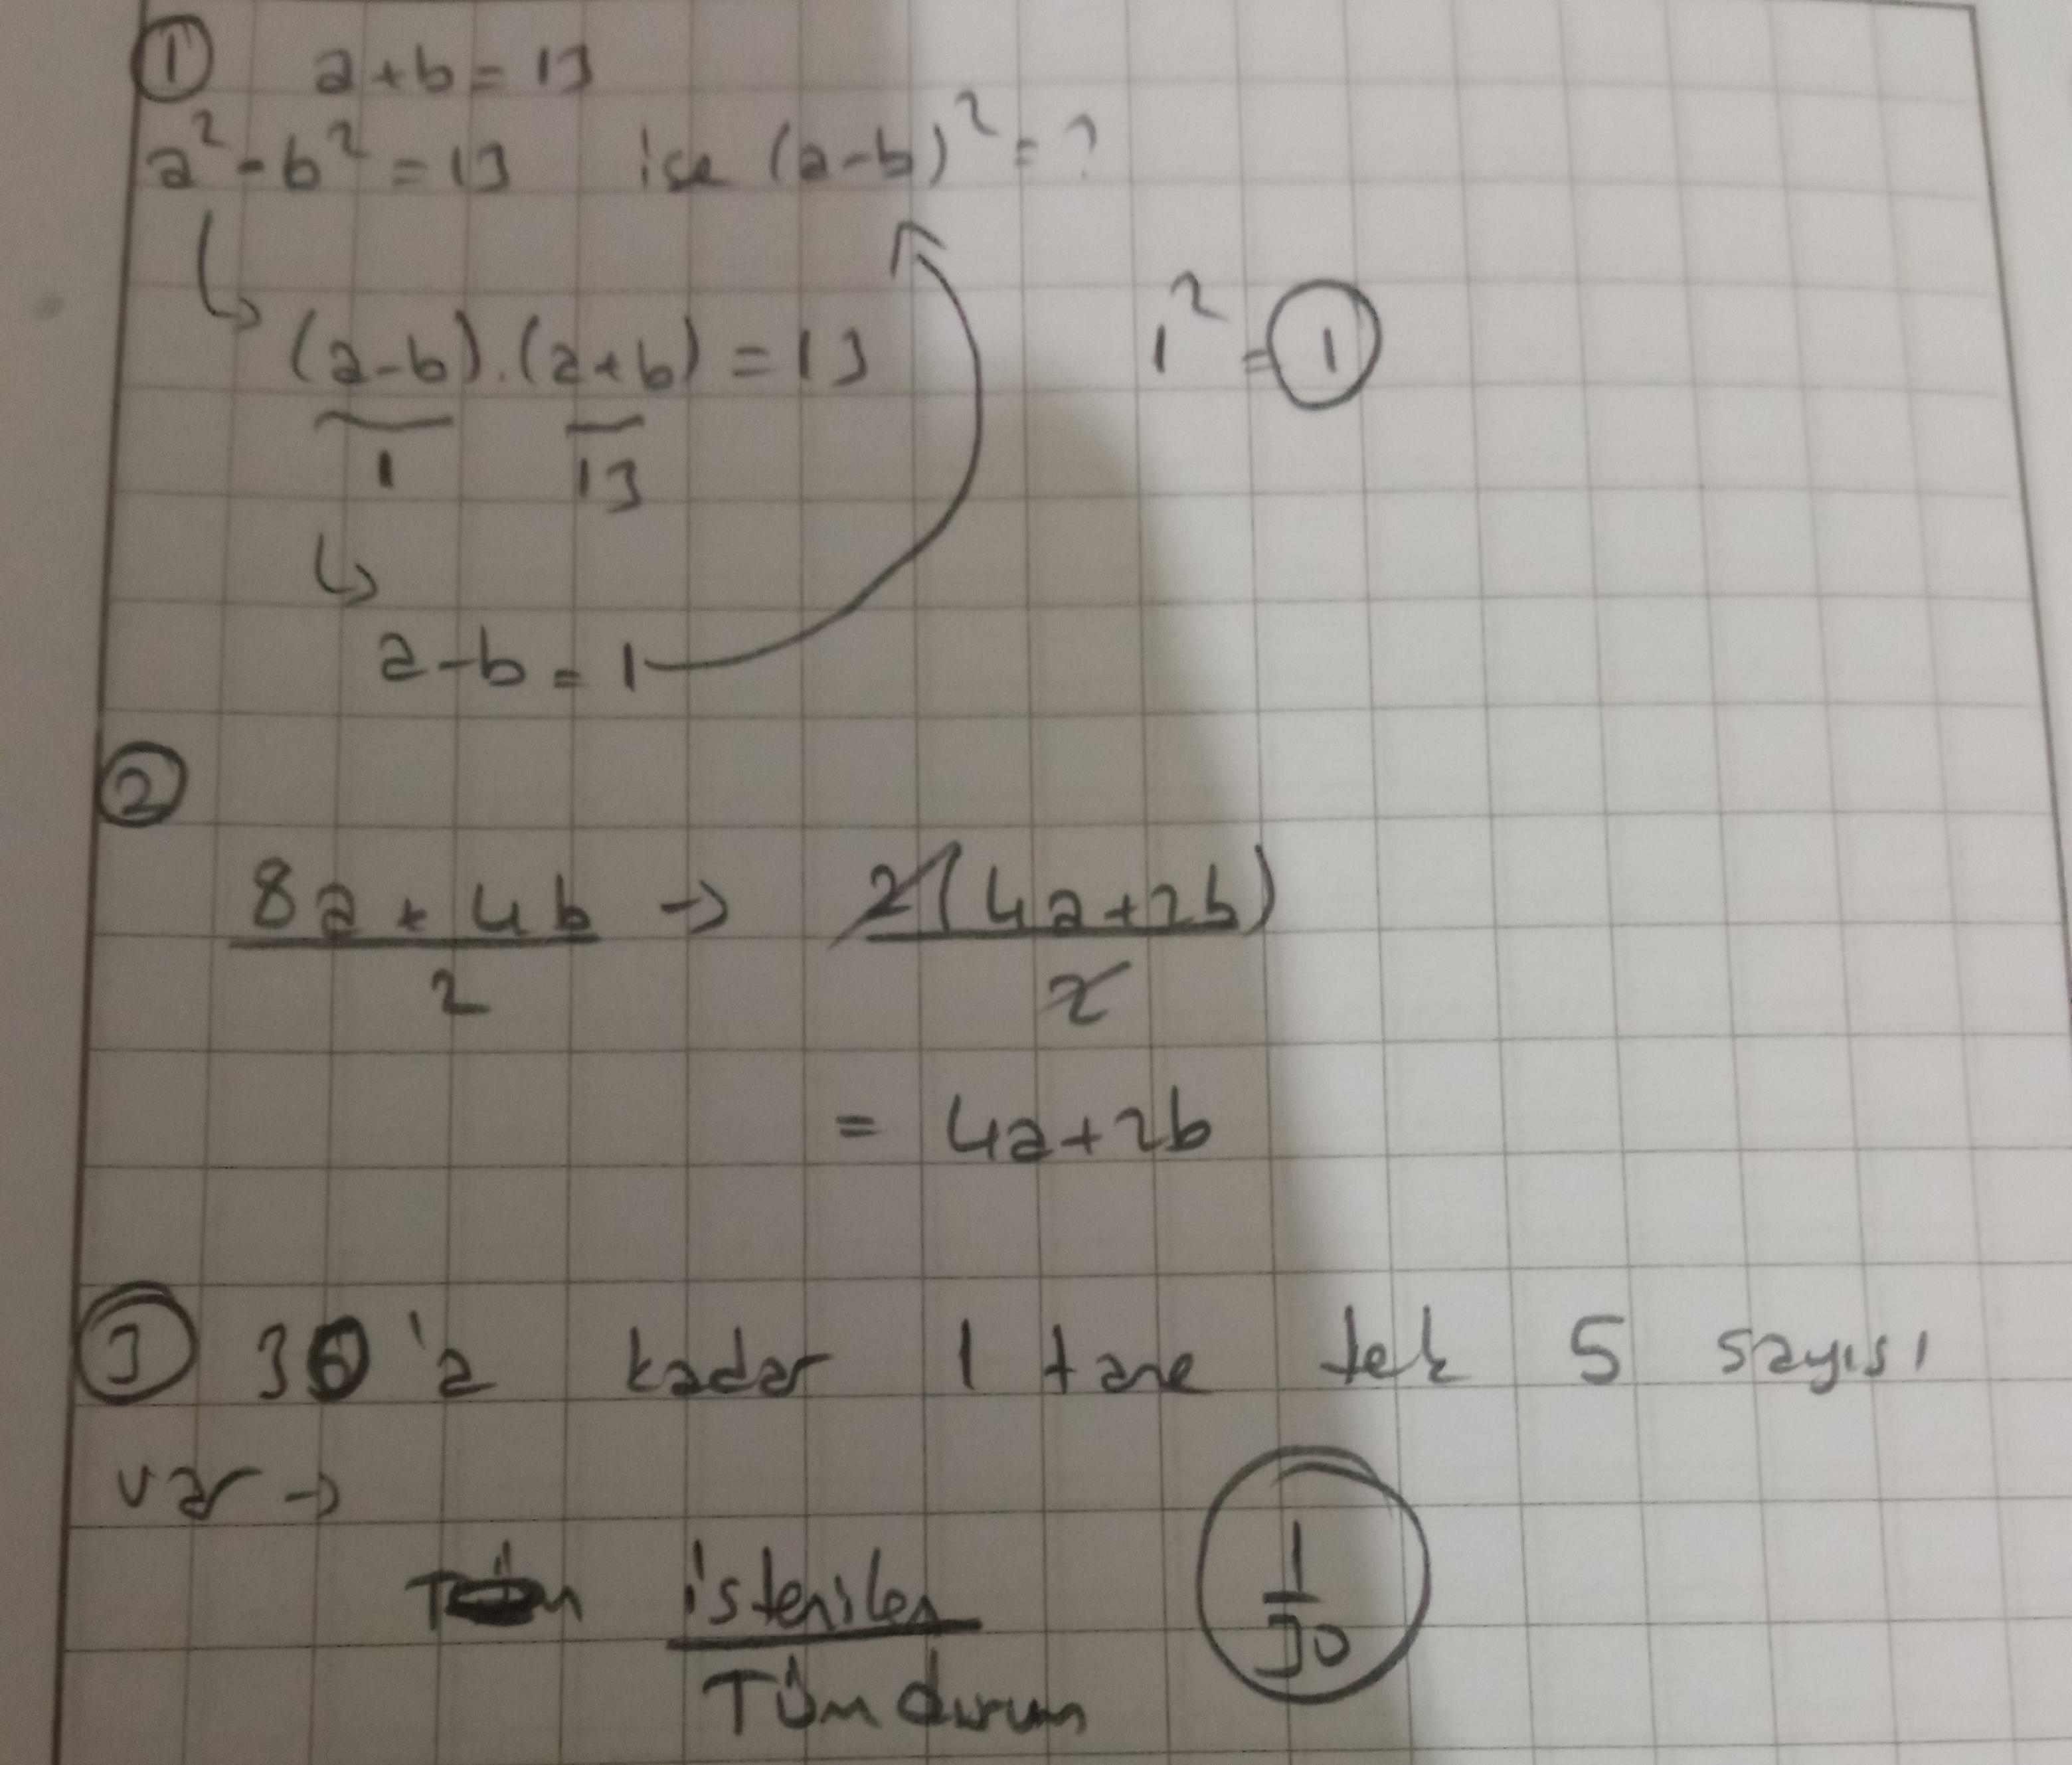 ① a+b=13
a²-b²=13 ise (a-b)²=?
(a-b).(a+b)=13
1 13
1²=1
a-b=1
②
8a+4b → 2(4a+2b)
2 2
= 4a+2b
③ 30'a kadar 1 tane tek 5 sayısı
var →
istenilen 1
Tüm durum 30